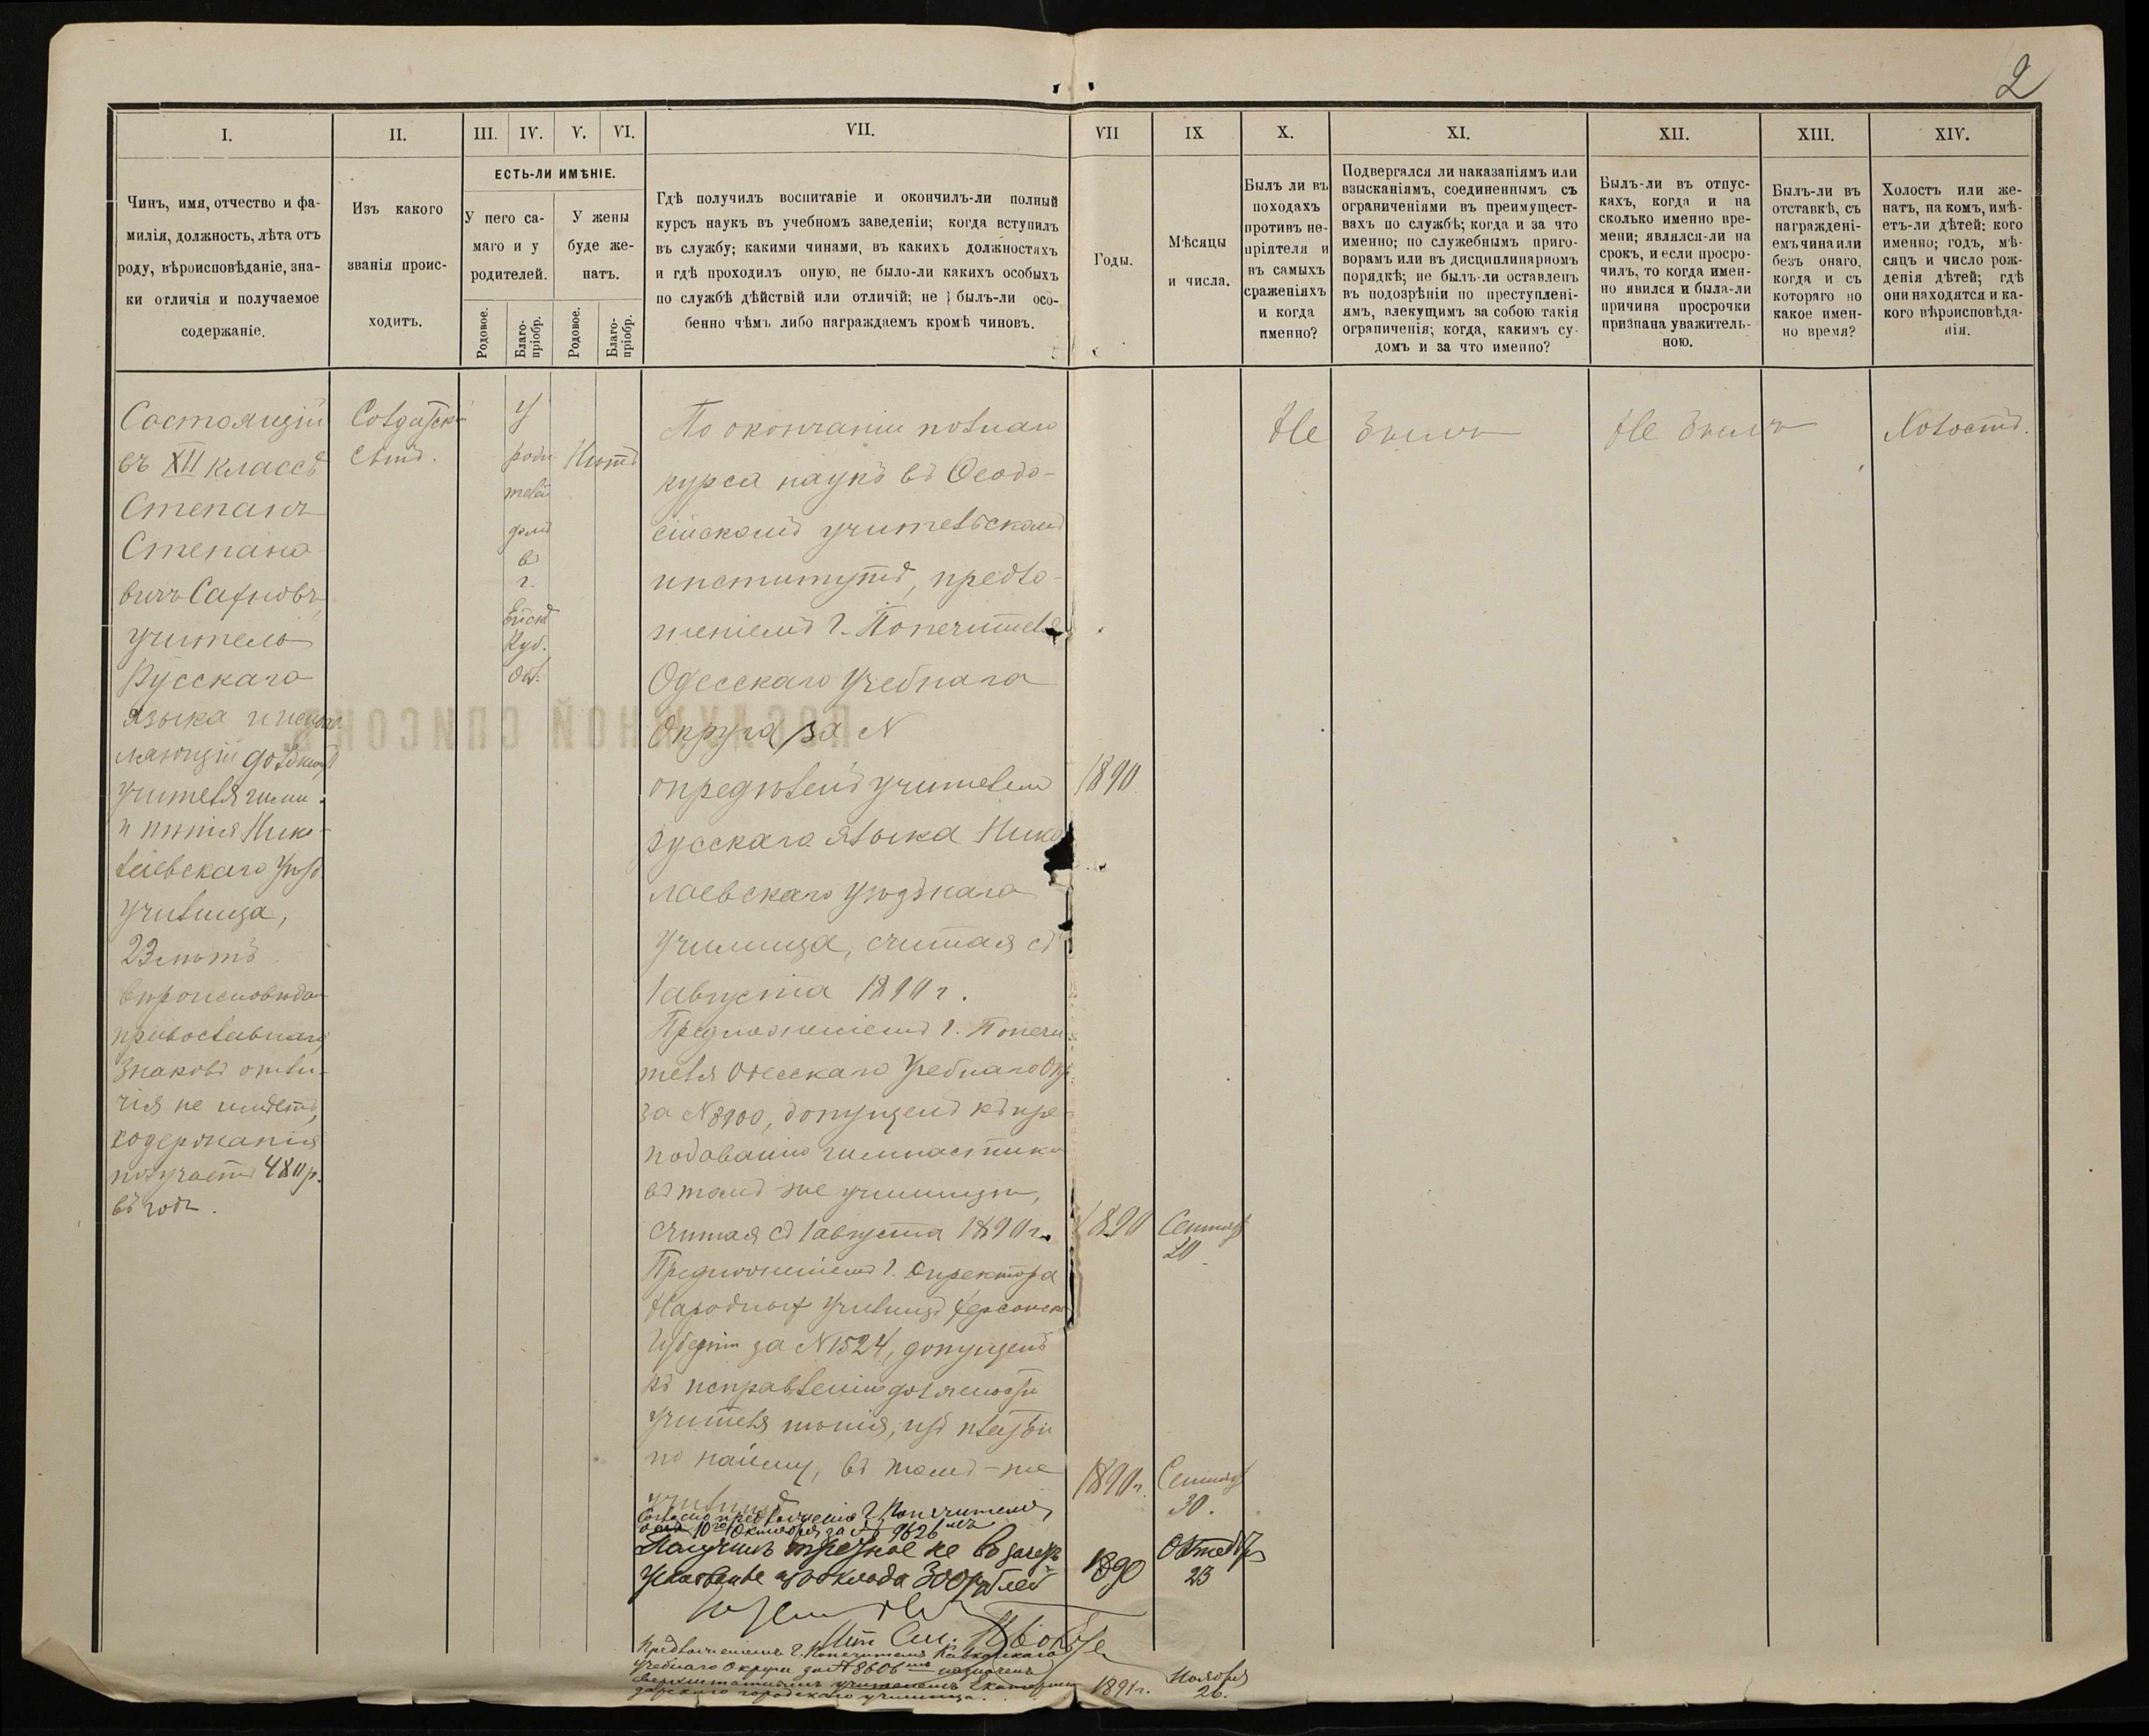 2
I.
II.
III.
IV.
V.
VI.
VII.
VII
IX
X.
XI.
XII.
XIII.
XIV.
Чинъ, имя, отчество и фа-
милія, должность, лѣта отъ
роду, вѣроисповѣданіе, зна-
ки отличія и получаемое
содержаніе.
Изъ какого
званія проис-
ходитъ.
ЕСТЬ-ЛИ ИМѢНІЕ.
У него са-
маго и у
родителей.
У жены
буде же-
натъ.
Родовое.
Благо-
пріобр.
Родовое.
Благо-
пріобр.
Гдѣ получилъ воспитаніе и окончилъ-ли полный
курсъ наукъ въ учебномъ заведеніи; когда вступилъ
въ службу; какими чинами, въ какихъ должностяхъ
и гдѣ проходилъ оную, не было-ли какихъ особыхъ
по службѣ дѣйствій или отличій; не былъ-ли осо-
бенно чѣмъ либо награждаемъ кромѣ чиновъ.
Годы.
Мѣсяцы
и числа.
Былъ ли въ
походахъ
противъ не-
пріятеля и
въ самыхъ
сраженіяхъ
и когда
именно?
Подвергался ли наказаніямъ или
взысканіямъ, соединеннымъ съ
ограниченіями въ преимущест-
вахъ по службѣ; когда и за что
именно; по служебнымъ приго-
ворамъ или въ дисциплинарномъ
порядкѣ; не былъ-ли оставленъ
въ подозрѣніи по преступлені-
ямъ, влекущимъ за собою такія
ограниченія; когда, какимъ су-
домъ и за что именно?
Былъ-ли въ отпус-
кахъ, когда и на
сколько именно вре-
мени; являлся-ли на
срокъ, и если просро-
чилъ, то когда имен-
но явился и была-ли
причина просрочки
признана уважитель-
ною.
Былъ-ли въ
отставкѣ, съ
награждені-
емъ чина или
безъ онаго,
когда и съ
котораго по
какое имен-
но время?
Холостъ или же-
натъ, на комъ, имѣ-
етъ-ли дѣтей: кого
именно; годъ, мѣ-
сяцъ и число рож-
денія дѣтей; гдѣ
они находятся и ка-
кого вѣроисповѣда-
нія.
Состоящій
въ XII классѣ
Степанъ
Степано
вичъ
учитель
Русскаго
языка и
должность
учителя гимн.
и пѣнія Нико-
лаевскаго Уѣзд.
училища,
23 лѣтъ
вѣроисповѣдан
православнаго,
знаковъ отли-
чія не имѣетъ,
содержанія
получаетъ 480 р.
въ годъ.
Солдатскій
сынъ.
У
роди
телей
домъ
въ
г.
Ейскѣ
Куб.
Обл.
Нѣтъ
По окончаніи полнаго
курса наукъ въ Ѳеодо-
сійскомъ учительскомъ
институтѣ, предло-
женіемъ г. Попечителя
Одесскаго Учебнаго
Округа за №
опредѣленъ учителемъ
русскаго языка Нико
лаевскаго Уѣзднаго
училища, считая съ
1 августа 1890 г.
Предложеніемъ г. Попечи
теля Одесскаго Учебнаго Окр.
за № 8900, допущенъ къ пре
подаванію гимнастики
въ томъ-же училищѣ,
считая съ 1 августа 1890 г.
Предложеніемъ г. Директора
Народныхъ Училищъ Херсонск
Губерніи за № 1524, допущенъ
къ исправленію должности
учителя пѣнія, изъ платы
по найму, въ томъ-же
училищѣ
Согласно предложенію г. Попечителя
10го Октября за № 9626
Получилъ третное не въ зачетъ
жалованье изъ оклада 300 рублей
Предложеніемъ г. Попечителя Кавказскаго
Учебнаго Округа за № 8606 назначенъ
сверхштатнымъ учителемъ Екатерино
дарскаго городскаго училища.
1890
1890
Сентябр
20
1890 г.
Сентябр
30.
1890
Октября
23
1891 г.
Ноября
26.
Не былъ
Не былъ
Холостъ.